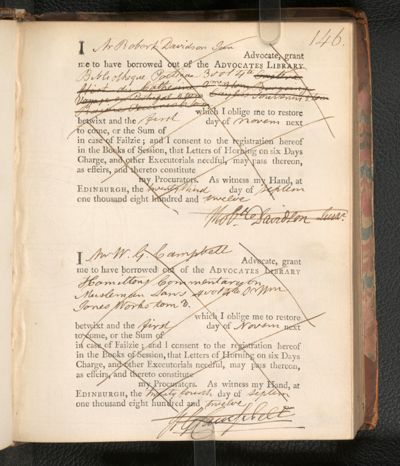 146.
I Mr Robert Davidson Jun
Advocate, grant
me to have borrowed out of the ADVOCATES LIBRARY
Bibliotheque Poetique 3 vol 4to
which I oblige me to restore
betwixt and the first day of Novem next
to come, or the Sum of
in case of Failzie; and I consent to the registration hereof
in the Books of Session, that Letters of Horning on six Days
Charge, and other Executorials needful, may pass thereon,
as effeirs, and thereto constitute
my Procurators. As witness my Hand, at
EDINBURGH, the twenty third day of Septem
one thousand eight hundred and twelve
Davidson Junr.
I Mr W. G. Campbell
Advocate, grant
me to have borrowed out of the ADVOCATES LIBRARY
Hamilton's Commentary on
Mussulman Laws 4 vol 4to Sr Wm
Jones Works tom
which I oblige me to restore
betwixt and the first day of Novem next
to come, or the Sum of
in case of Failzie; and I consent to the registration hereof
in the Books of Session, that Letters of Horning on six Days
Charge, and other Executorials needful, may pass thereon,
as effeirs, and thereto constitute
my Procurators. As witness my Hand, at
EDINBURGH, the twenty fourth day of Septem
one thousand eight hundred and twelve
W G Campbell